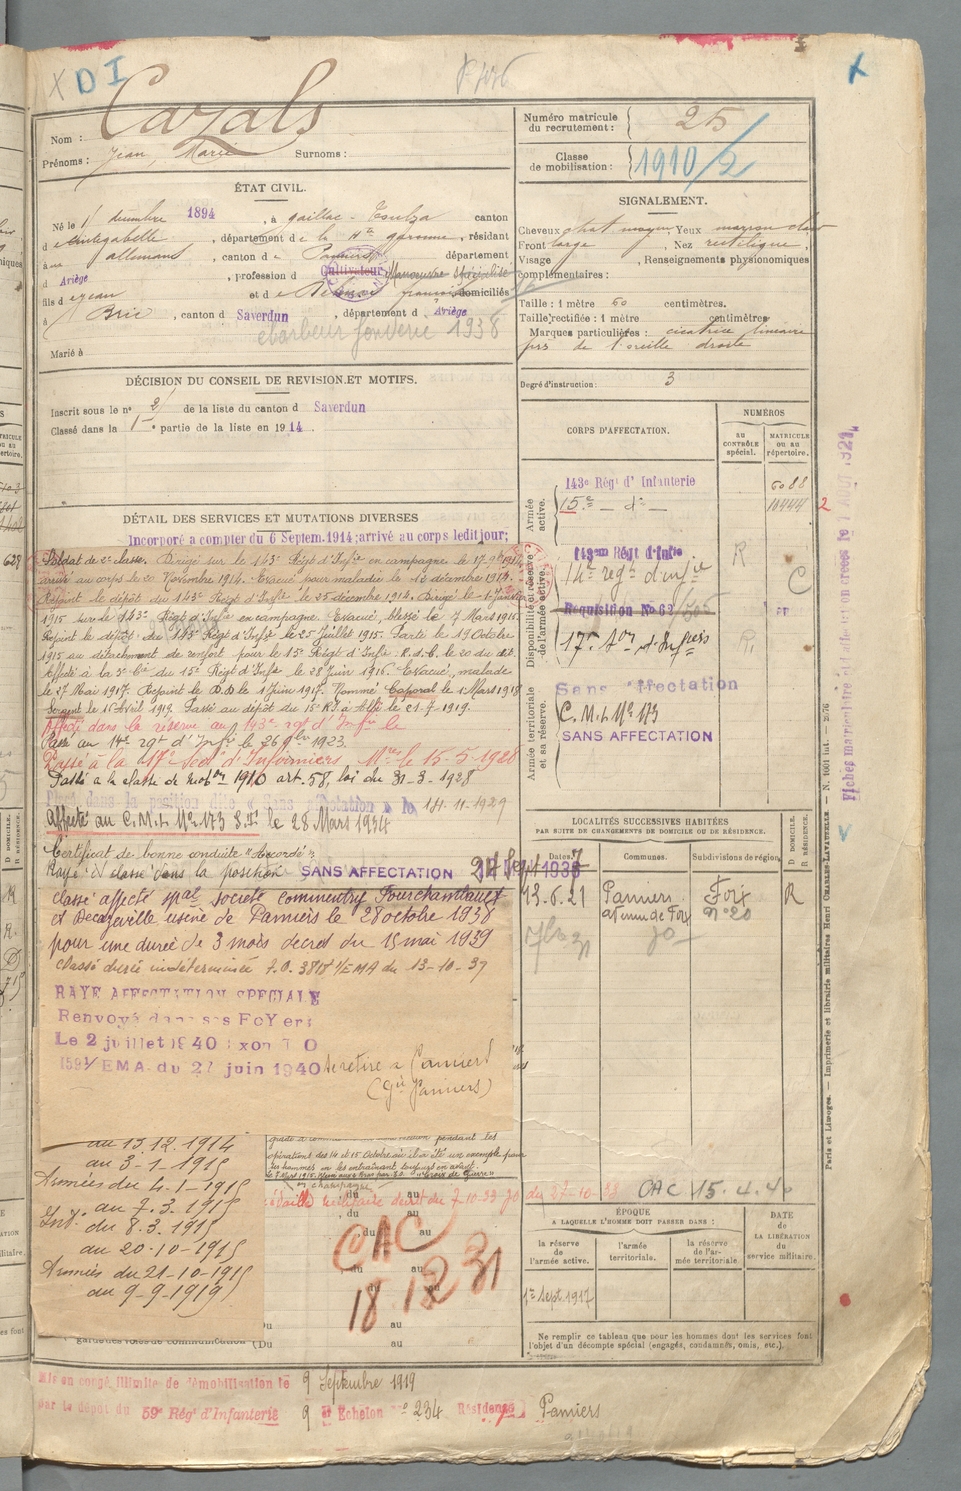 X D I
Nom : Cazals
Prénoms : Jean, Marie Surnoms :
Numéro matricule du recrutement : 25
Classe de mobilisation : 1910/2
ÉTAT CIVIL.
Né le 1/ décembre 1894, à Gaillac-Toulza canton
d e Cintegabelle, département d e la Hte Garonne, résidant
à allemans, canton d e Pamiers département
d Ariège, profession d Cultivateur Manoeuvre spécialisé
fils d e Jean et d e domiciliés
à Brie, canton d Saverdun, département d Ariège
1938
Marié à
SIGNALEMENT.
Cheveux chat moyen Yeux marron clair
Front large, Nez rectiligne,
Visage , Renseignements physionomiques
complémentaires :
Taille : 1 mètre 60 centimètres.
Taille rectifiée : 1 mètre centimètres
Marques particulières : cicatrice linéaire
près de l'oreille droite
Degré d'instruction : 3
DÉCISION DU CONSEIL DE REVISION ET MOTIFS.
Inscrit sous le n° 2/ de la liste du canton d Saverdun
Classé dans la 1re partie de la liste en 1914.
DÉTAIL DES SERVICES ET MUTATIONS DIVERSES
Incorporé a compter du 6 Septem. 1914; arrivé au corps ledit jour;
Soldat de 2e classe. Dirigé sur le 143e Régt d'Infie en campagne le 17 9bre 1914
arrivé au corps le 20 Novembre 1914. Evacué pour maladie le 13 décembre 1914.
Rejoint le dépôt du 143e Régt d'Infie le 25 décembre 1914. Dirigé le 4 Janvier
1915 sur le 143e Régt d'Infie en campagne. Evacué, blessé le 7 Mars 1915.
Rejoint le dépôt du 143e Régt d'Infie le 25 Juillet 1915. Parti le 19 Octobre
1915 au détachement de renfort pour le 15e Régt d'Infie R.d.C. le 20 du dit.
Affecté à la 5e Cie du 15e Régt d'Infie le 28 Juin 1916. Evacué, malade
le 27 Mai 1917. Rejoint le D.D. le 1 Juin 1917. Nommé Caporal le 1 Mars 1918
Sergent le 15 Avril 1919. Passé au dépôt du 15e RI à Albi le 21-7-1919.
Affecté dans la réserve au 143e rgt d'Infie le
Passé au 14e rgt d'Infie le 26 9bre 1923.
Passé à la 17e Son d'Infirmiers Mres le 15-5-1928
Passé à la classe de mobon 1910 art. 58, loi du 31-3-1928
dans la position dite « Sans affectation » le 14.11.1929
Affecté au C.M.I. N° 173 S.I. le 28 Mars 1934
Certificat de bonne conduite "Accordé"
Rayé et classé dans la position SANS AFFECTATION
classé affecté spal société commentry Fourchambault
et Decazeville usine de Pamiers le 28 octobre 1938
pour une durée de 3 mois décret du 15 mai 1939
classé durée indéterminée J.O. 1/EMA du 13-10-39
RAYE AFFECTATION SPECIALE
Renvoyé dans ses FoYers
Le 2 juillet 1940
1593/EMA du 27 juin 1940 se retire a Pamiers
(Gie Pamiers)
CORPS D'AFFECTATION.
NUMÉROS
AU CONTRÔLE spécial.
MATRICULE ou au répertoire.
Armée active.
143e Régt d'Infanterie 6088
15e — d° — 10444 2
Disponibilité et réserve de l'armée active.
143em Régt d'Infie R
14e régt d'infie C
Requisition No 63
17e Son d'Infres R.
Armée territoriale et sa réserve.
Sans affectation
C.M.I. N° 173
SANS AFFECTATION
LOCALITÉS SUCCESSIVES HABITÉES
PAR SUITE DE CHANGEMENTS DE DOMICILE OU DE RÉSIDENCE.
Dates. Communes. Subdivisions de région. D DOMICILE. R RÉSIDENCE.
13.6.21 Pamiers Foix R
av. de Foix n° 20
au 13.12.1914
au 3-1-1915
Armées du 4-1-1915
au 7.3.1915
Int. du 8.3.1915
au 20-10-1915
Armées du 21-10-1915
au 9-9-1919
pendant les
opérations des 14 et 15 Octobre où il a été un exemple pour
ses hommes en les entraînant toujours en avant.
"Croix de Guerre"
champagne
Médaille militaire décret du 7-10-33 JO du 27-10-33 CAC 15.4.40
, du au
, du au
, du au
, du au
CAC
18 12 31
Du au
(Du au
ÉPOQUE
A LAQUELLE L'HOMME DOIT PASSER DANS :
la réserve de l'armée active.
l'armée territoriale.
la réserve de l'armée territoriale.
DATE de LA LIBÉRATION du service militaire.
1er Sept 1917
Ne remplir ce tableau que pour les hommes dont les services font
l'objet d'un décompte spécial (engagés, condamnés, omis, etc.).
Mis en congé illimité de démobilisation le 9 Septembre 1919
par le dépôt du 59e Régt d'Infanterie 9 er Echelon n° 234 Résidence Pamiers
Paris et Limoges. — Imprimerie et librairie militaires Henri CHARLES-LAVAUZELLE — N. 1604 int. — 2676